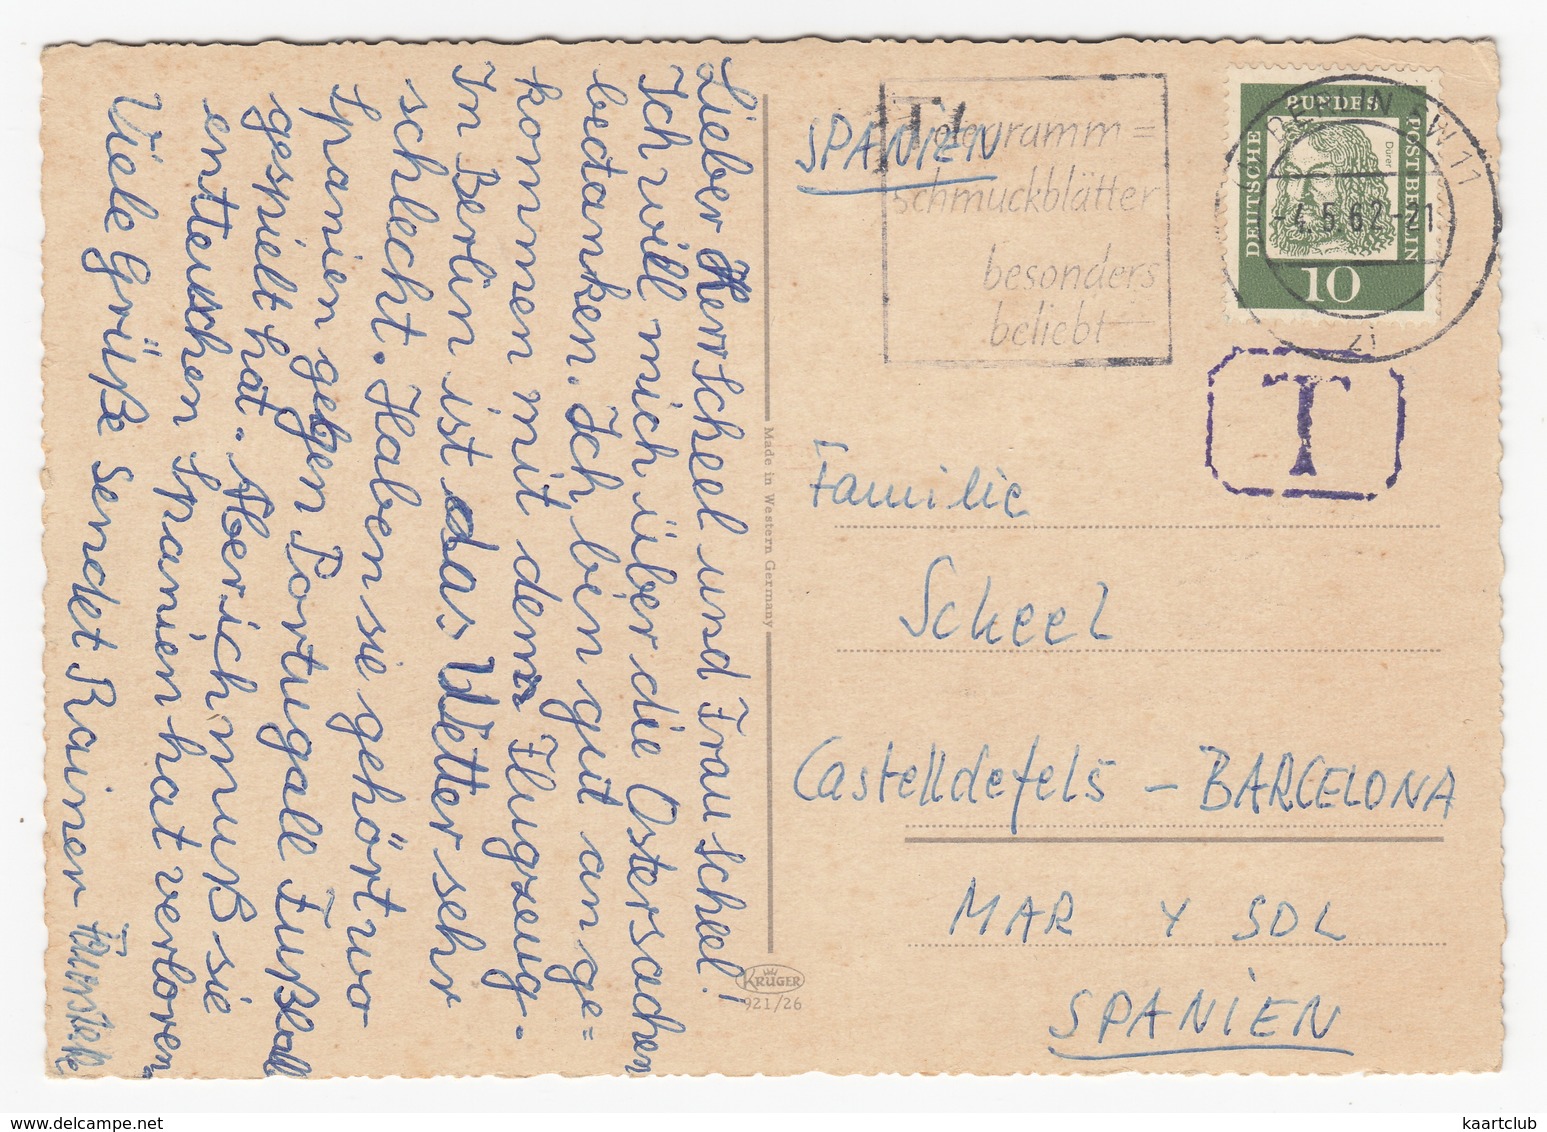 Lieber Herr Scheel und Frau scheel!
Ich will mich über die Ostersachen
bedanken. Ich bin gut ange=
kommen mit dem Flugzeug.
In Berlin ist das Wetter sehr
schlecht. Haben sie gehört wo
Spanien gegen Portugall Fußball
gespielt hat. Aber ich muß sie
entteuschen Spanien hat verloren
Viele Grüße Sendet Rainer
Made in Western Germany
KRÜGER
921/26
SPANIEN
Telegramm=
schmuckblätter
besonders
beliebt
BERLIN SW 11
-4.5.62-21
zi
DEUTSCHE
BUNDES
POST BERLIN
Dürer
10
T
Familie
Scheel
Castelldefels – BARCELONA
MAR Y SOL
SPANIEN
kaartclub